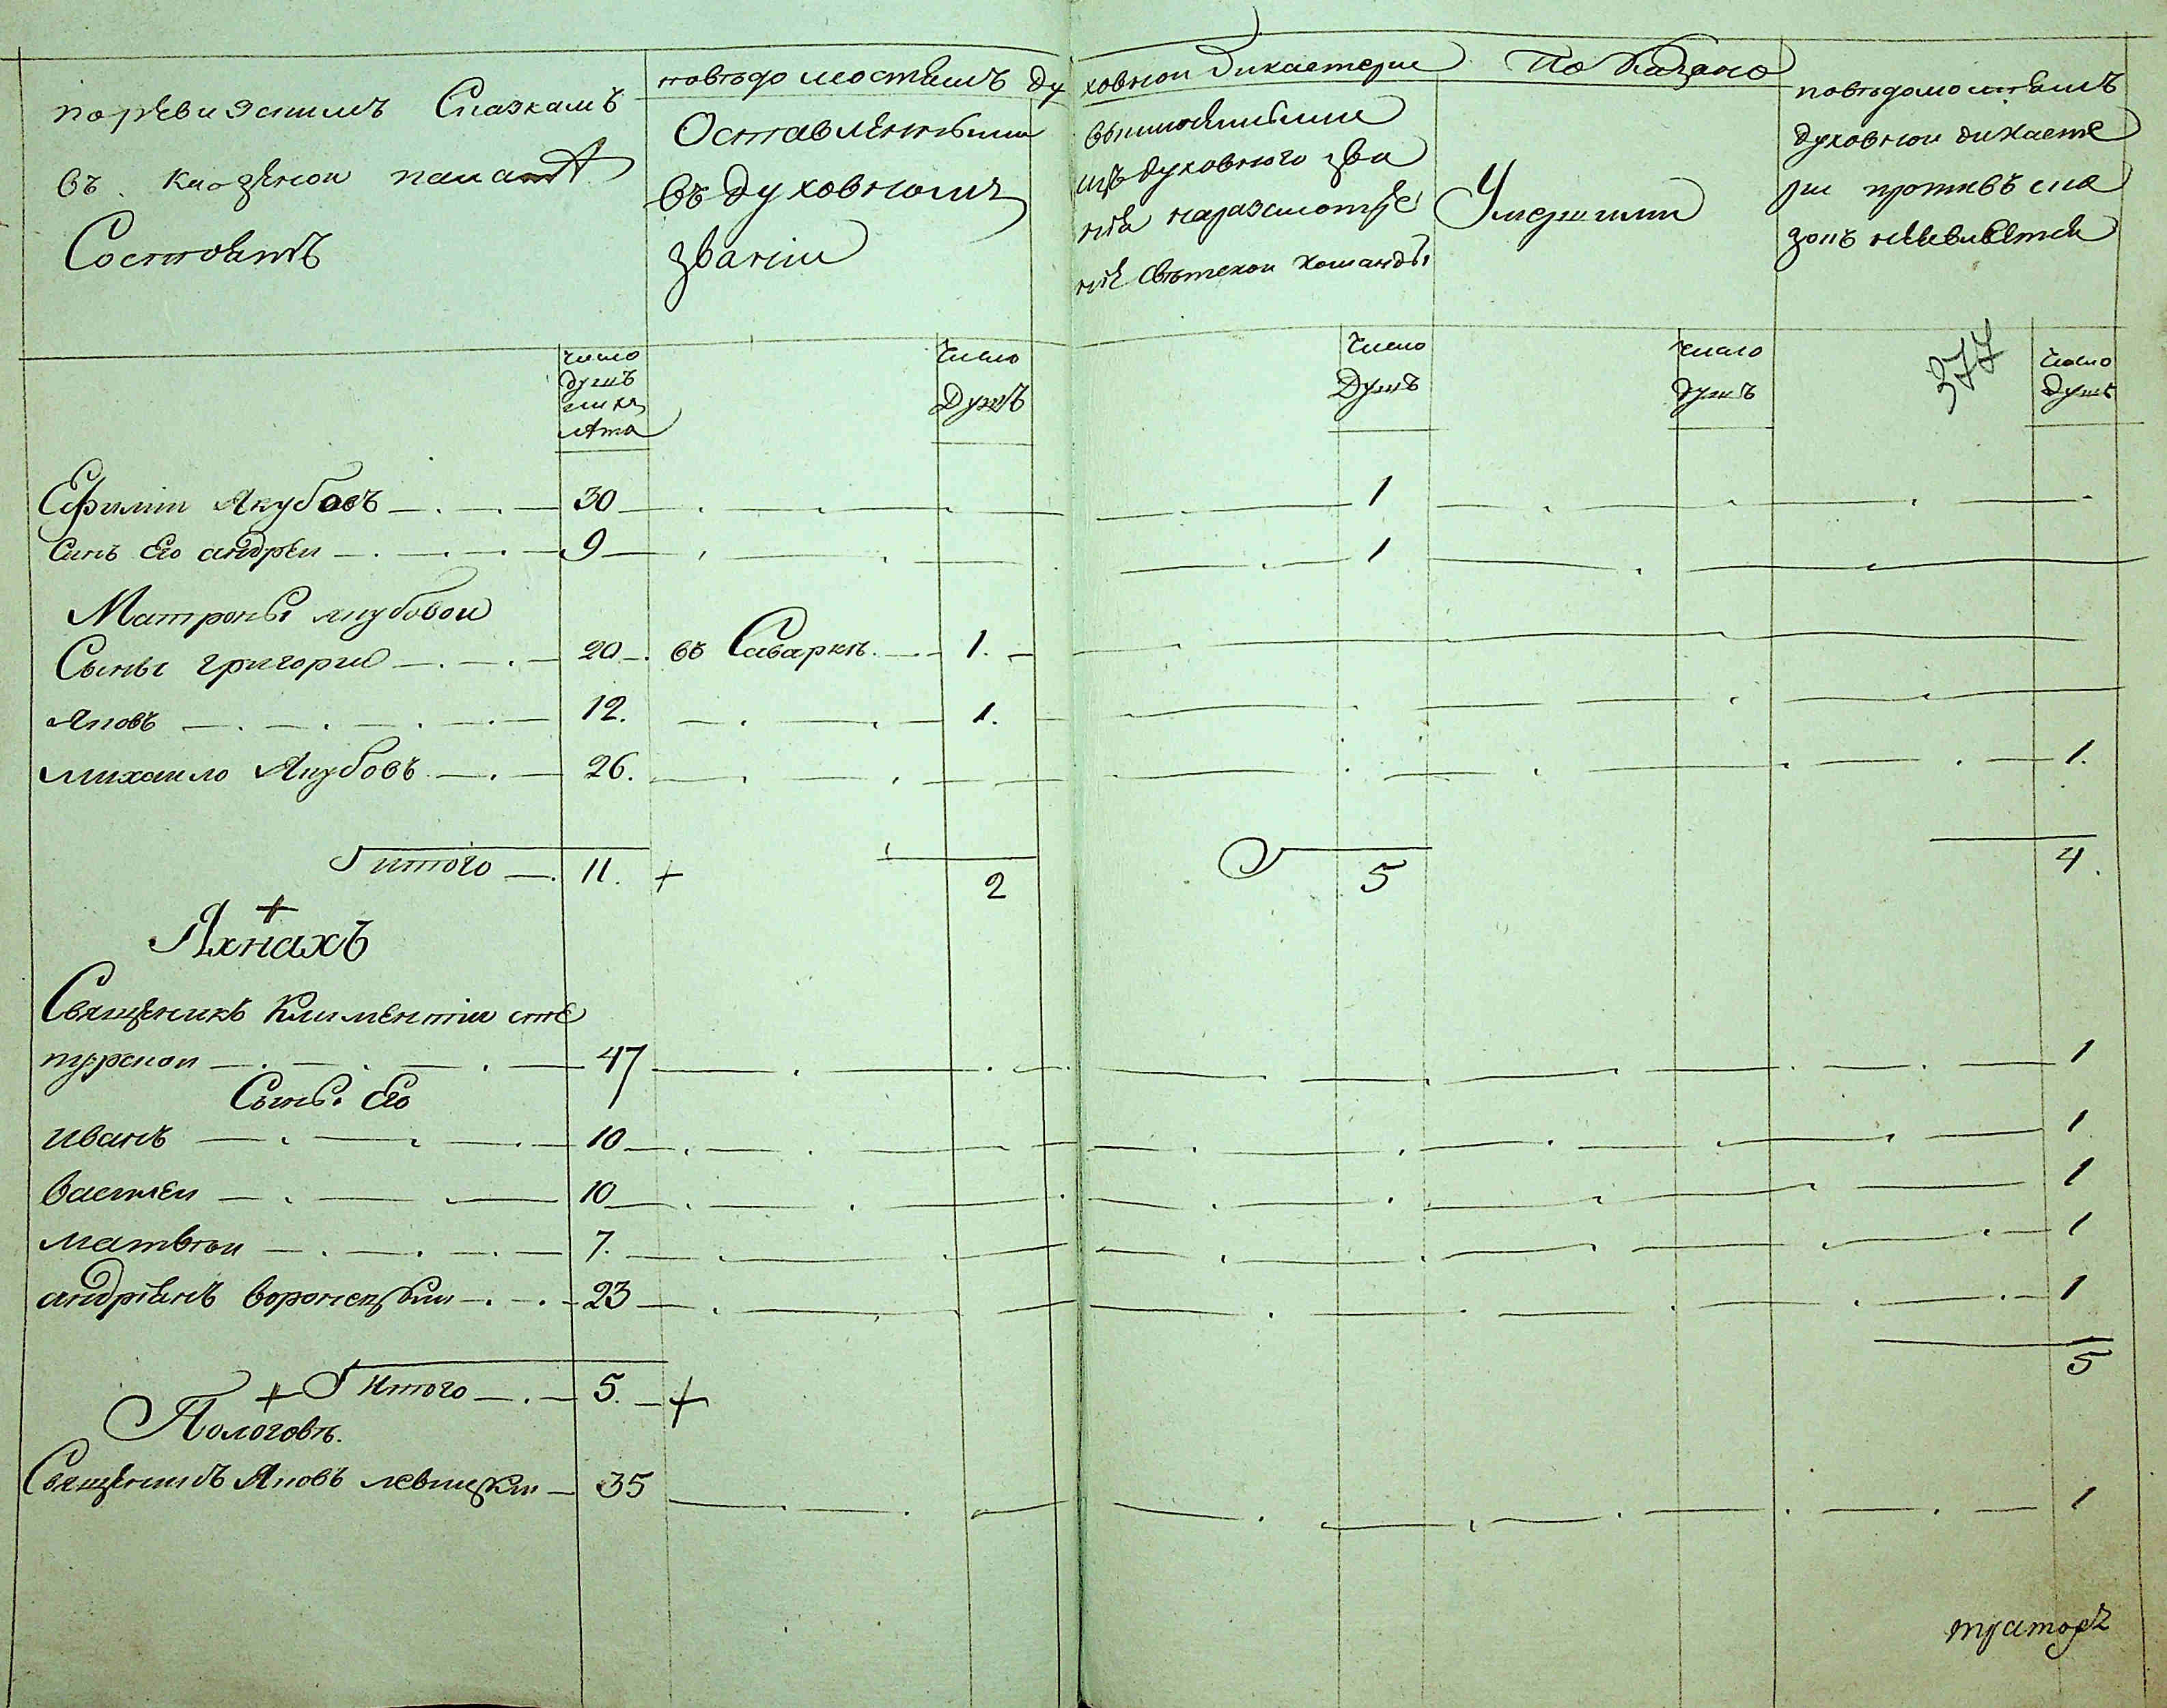 поревизскимъ Сказкамъ
въ казенной палатѣ
Состоитъ
поведомостямъ Духовной дикастерии По казано
Оставленными
въ духовномъ
звании
выключенными
изъ духовного зва
ния наразсмотре
ние светской команды
Умершими
поведомостямъ
духовной дикасте
рии противъ ска
зокъ неявляется
число
душъ
и ихъ
лѣта
число
душъ
число
душъ
число
душъ
377
число
душъ
Ефимии Якубовъ 30 1
Синъ Его андреи 9 1
Матроны якубовои
Сыны григории 20 въ Саварке 1.
Яковъ 12. 1.
михаило Якубовъ 26. 1.
итого 11. + 2 5 4.
+
Яхнахъ
Священикъ Климентии сте
пурскои 47 1
Сыны Его
иванъ 10 1
василеи 10 1
матвѣи 7. 1
андріянъ воронецкии 23 1
+ Итого 5. + 5
Пологовѣ.
Священикъ Яковъ левицкии 35 1